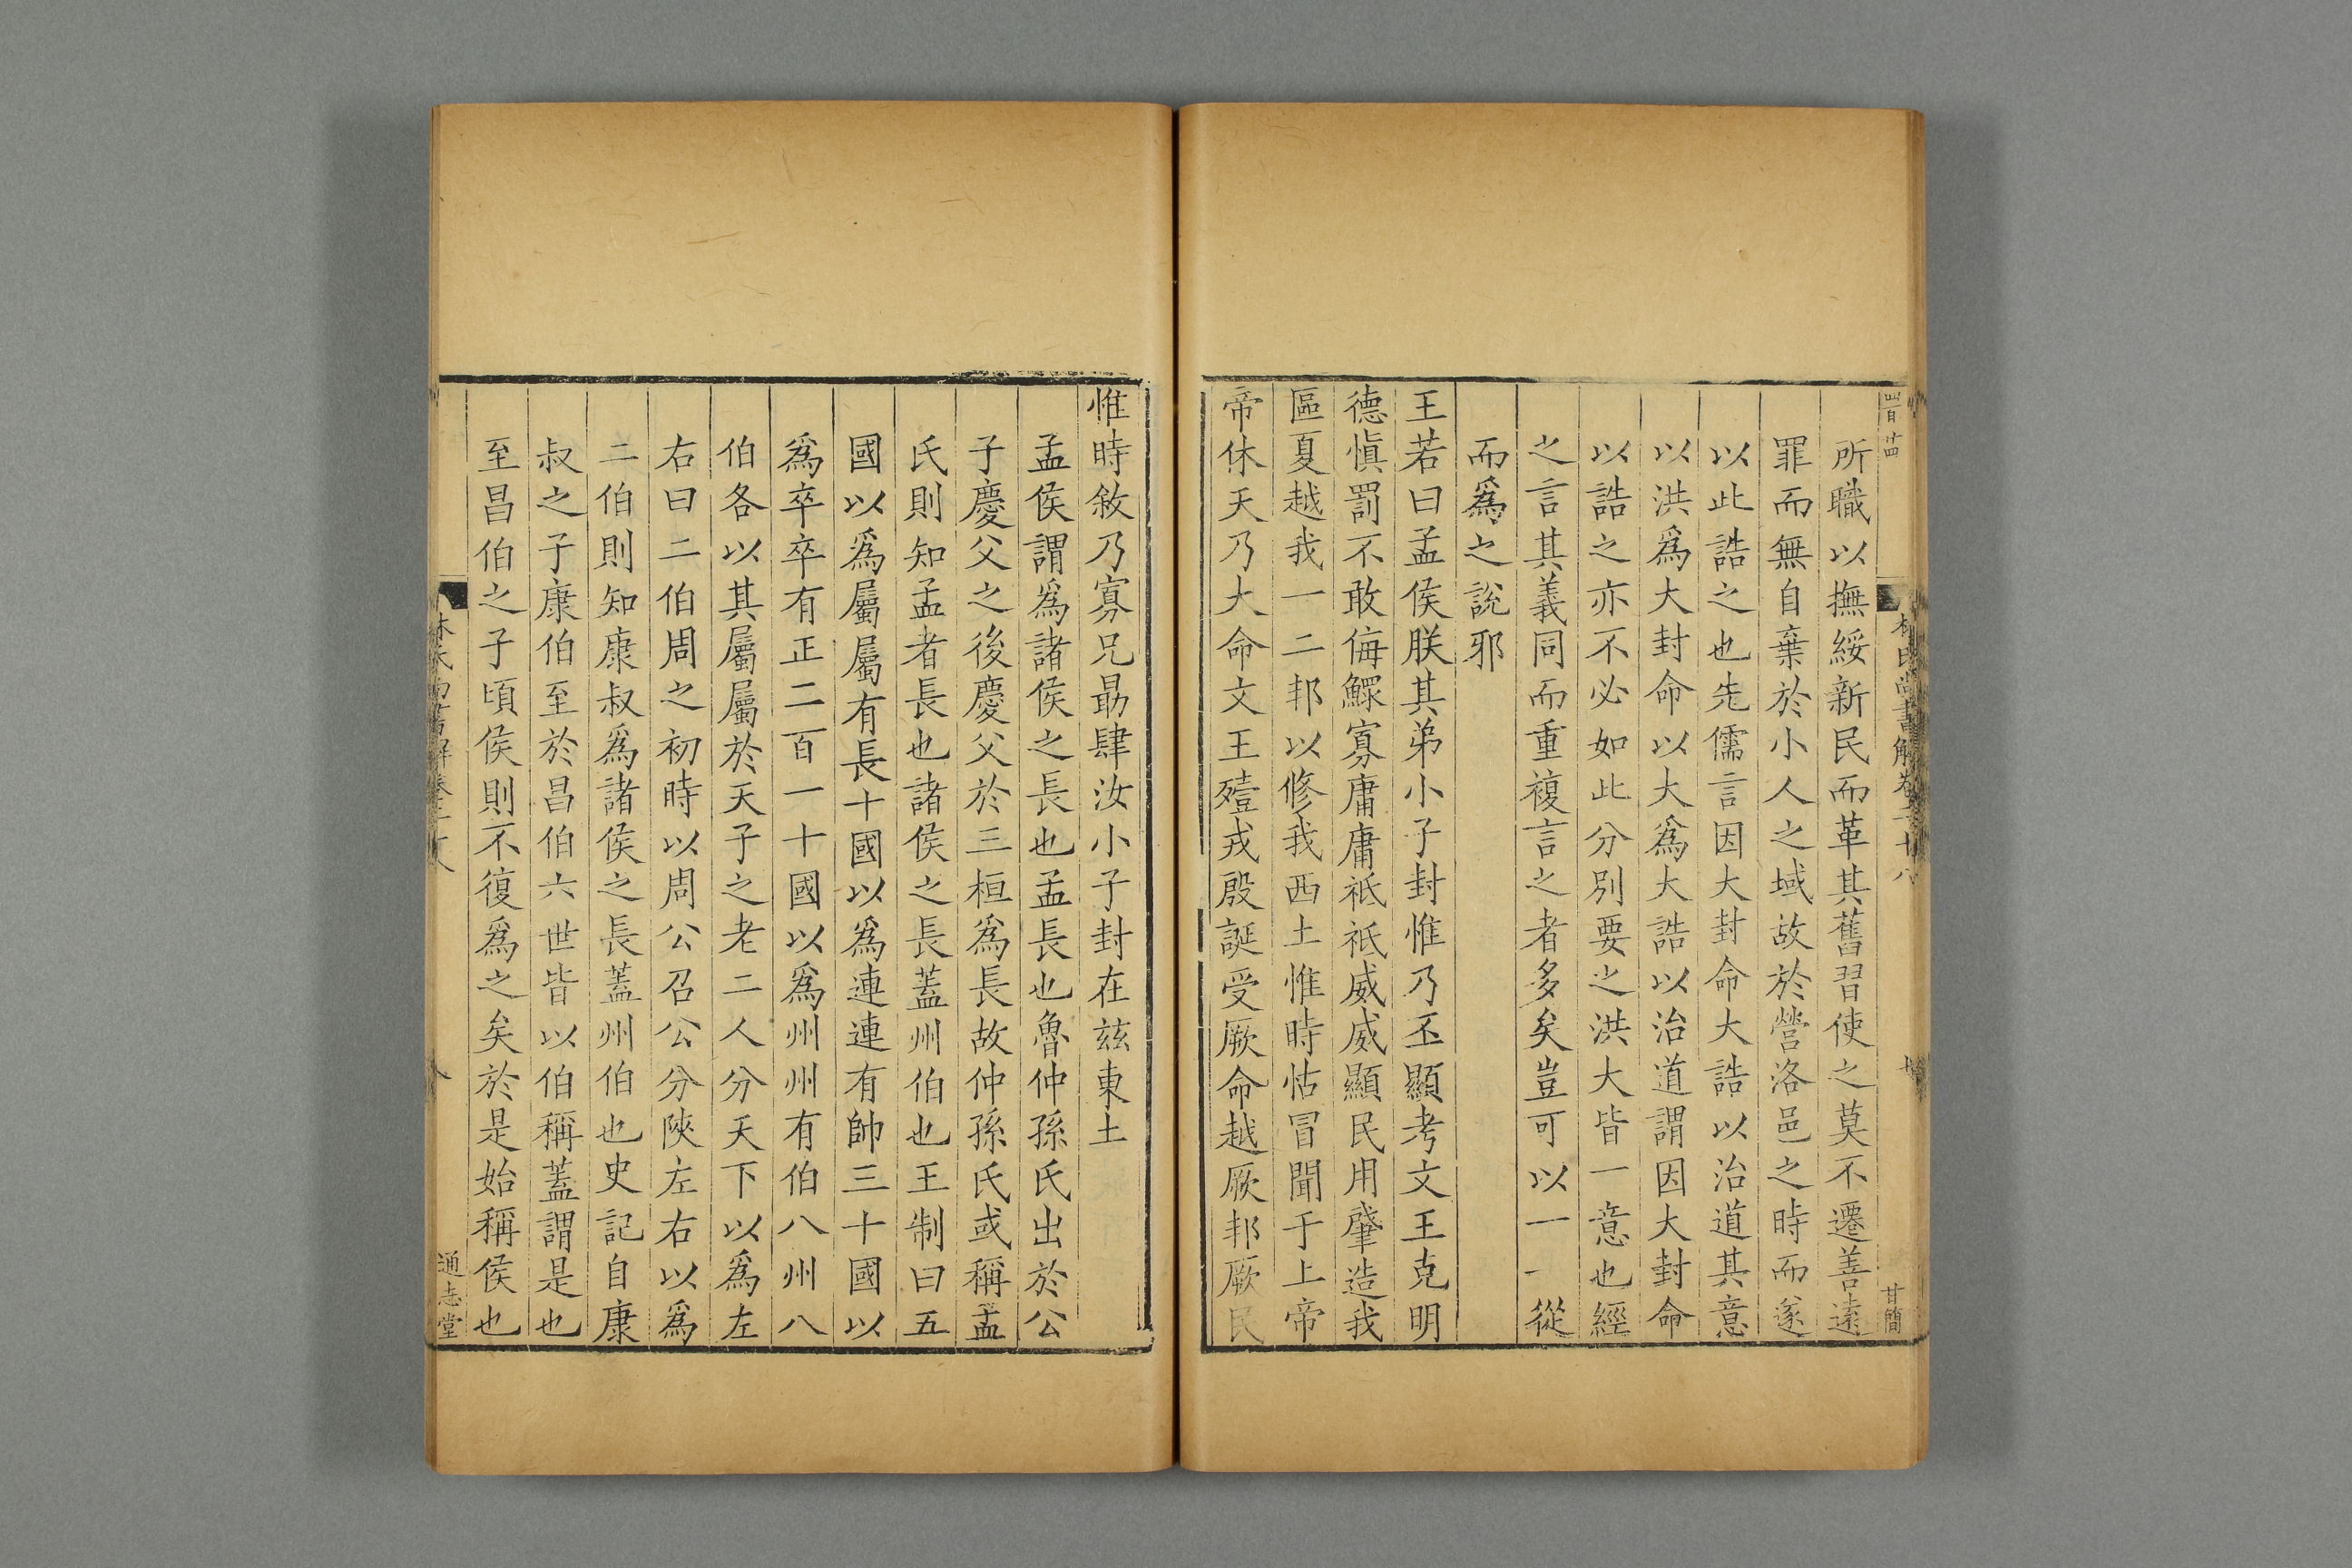 林氏尚書解卷二十八
甘簡
所職以撫綏新民而革其舊習使之莫不遷善遠
罪而無自棄於小人之域故於營洛邑之時而遂
以此誥之也先儒言因大封命大誥以治道其意
以洪爲大封命以大爲大誥以治道謂因大封命
以誥之亦不必如此分別要之洪大皆一意也經
之言其義同而重複言之者多矣豈可以一一從
而爲之說邪
王若曰孟侯朕其弟小子封惟乃丕顯考文王克明
德愼罰不敢侮鰥寡庸庸祗祗威威顯民用肇造我
區夏越我一二邦以修我西土惟時怙冒聞于上帝
帝休天乃大命文王殪戎殷誕受厥命越厥邦厥民
惟時敘乃寡兄勗肆汝小子封在茲東土
孟侯謂爲諸侯之長也孟長也魯仲孫氏出於公
子慶父之後慶父於三桓爲長故仲孫氏或稱孟
氏則知孟者長也諸侯之長蓋州伯也王制曰五
國以爲屬屬有長十國以爲連連有帥三十國以
爲卒卒有正二百一十國以爲州州有伯八州八
伯各以其屬屬於天子之老二人分天下以爲左
右曰二伯周之初時以周公召公分陝左右以爲
二伯則知康叔爲諸侯之長蓋州伯也史記自康
叔之子康伯至於昌伯六世皆以伯稱蓋謂是也
至昌伯之子頃侯則不復爲之矣於是始稱侯也
通志堂